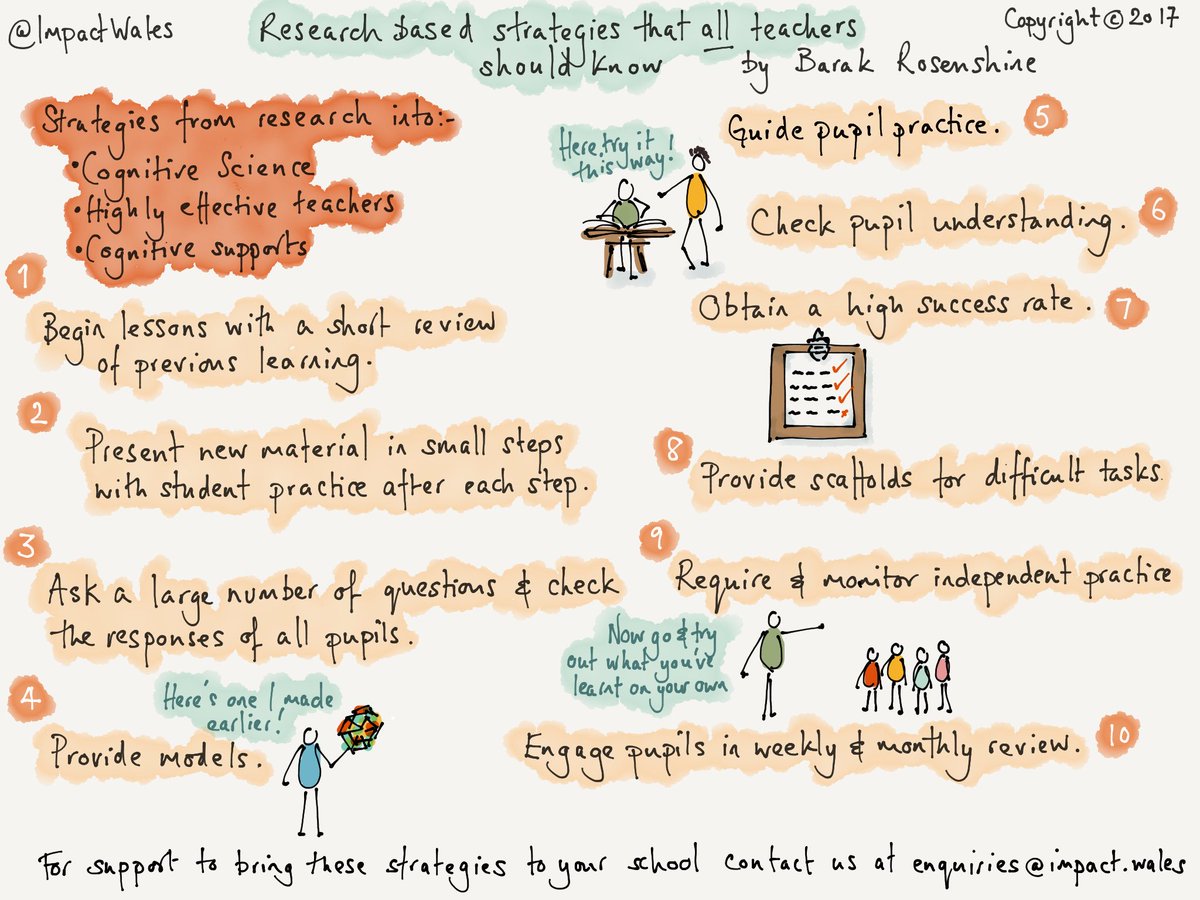 @ImpactWales
Research based strategies that all teachers
should know by Barak Rosenshine
Copyright © 2017
Strategies from research into:-
• Cognitive Science
• Highly effective teachers
• Cognitive supports
1
Begin lessons with a short review
of previous learning.
2
Present new material in small steps
with student practice after each step.
3
Ask a large number of questions & check
the responses of all pupils.
4
Here's one I made
earlier!
Provide models.
Here, try it
this way!
Guide pupil practice.
5
Check pupil understanding.
6
Obtain a high success rate.
7
8
Provide scaffolds for difficult tasks
9
Require & monitor independent practice
Now go & try
out what you've
learnt on your own
Engage pupils in weekly & monthly review.
10
For support to bring these strategies to your school contact us at enquiries@impact.wales